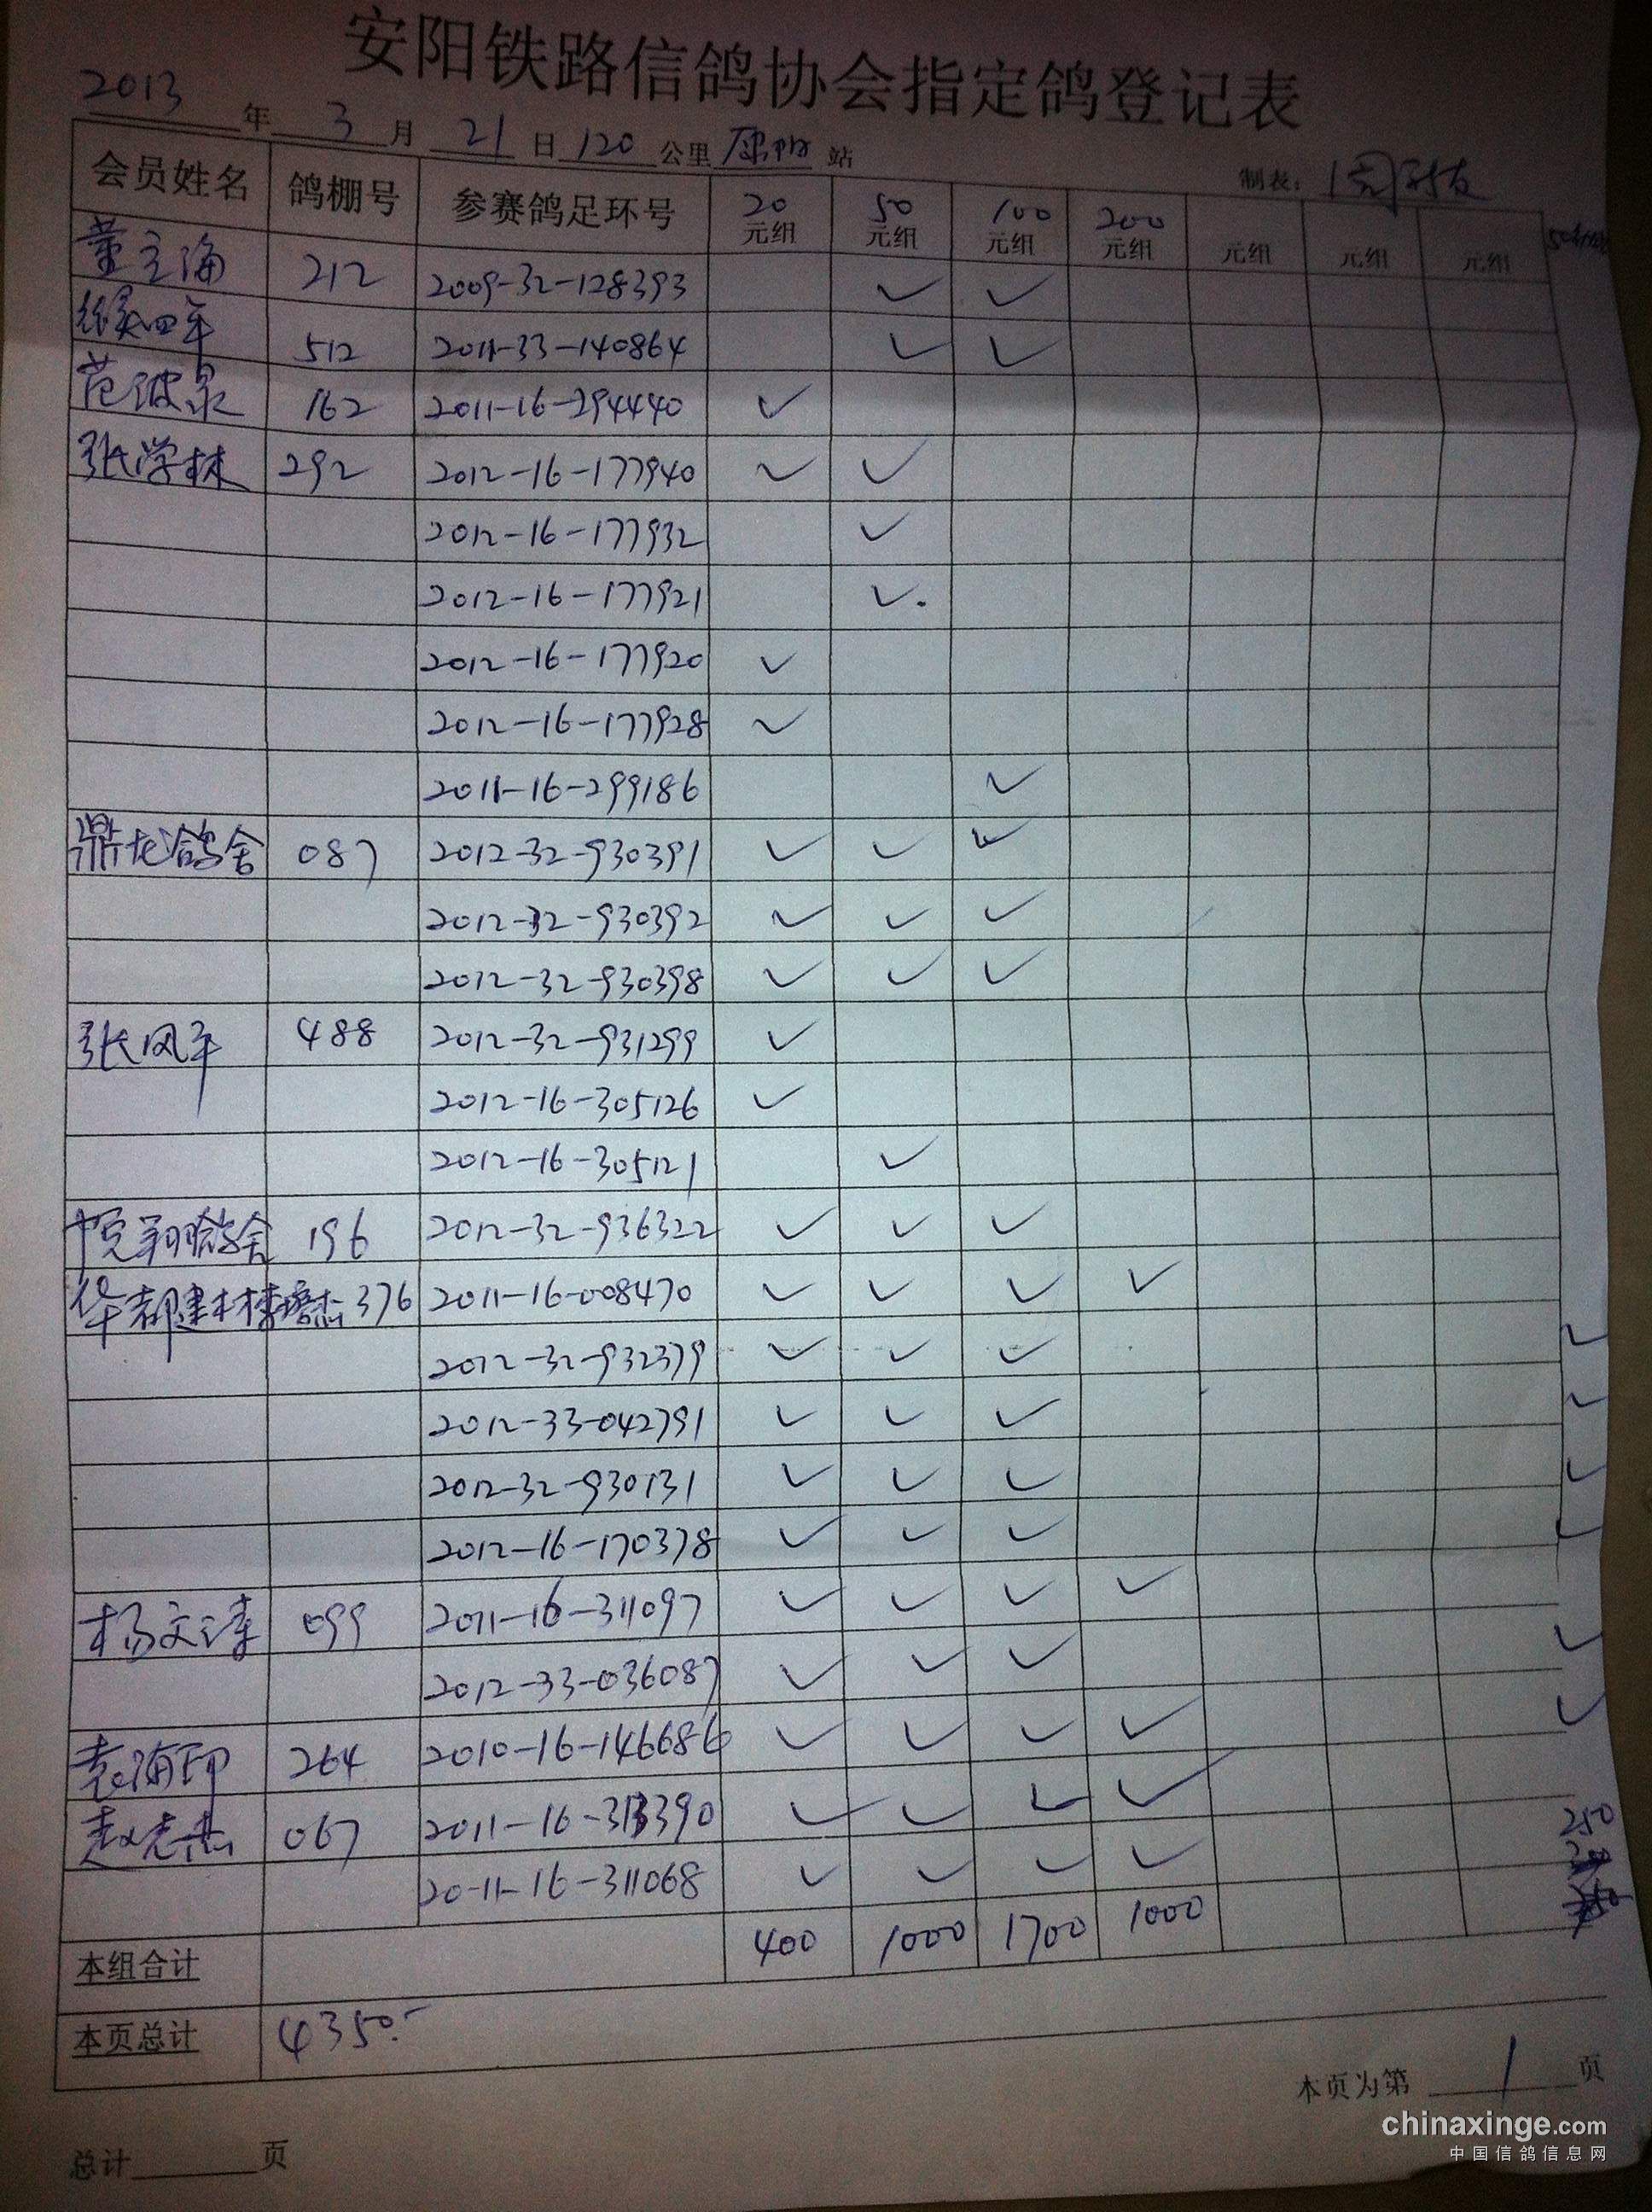 安阳铁路信鸽协会指定鸽登记表
2013年3月21日120公里原阳站
制表：周
会员姓名 鸽棚号 参赛鸽足环号 20元组 50元组 100元组 200元组 元组 元组 元组
董立海 212 2009-32-128393 ✓ ✓
徐四平 512 2011-33-140864 ✓ ✓
范波泉 162 2011-16-294440 ✓
张学林 292 2012-16-177940 ✓ ✓
2012-16-177932 ✓
2012-16-177921 ✓
2012-16-177920 ✓
2012-16-177928 ✓
2011-16-299186 ✓
鼎龙鸽舍 087 2012-32-930391 ✓ ✓ ✓
2012-32-930392 ✓ ✓ ✓
2012-32-930398 ✓ ✓ ✓
张风平 488 2012-32-931299 ✓
2012-16-305126 ✓
2012-16-305121 ✓
翔鸽舍 196 2012-32-936322 ✓ ✓ ✓
华都建材 376 2011-16-008470 ✓ ✓ ✓ ✓
2012-32-932379 ✓ ✓ ✓ ✓
2012-33-042791 ✓ ✓ ✓ ✓
2012-32-930131 ✓ ✓ ✓ ✓
2012-16-170378 ✓ ✓ ✓ ✓
杨文涛 099 2011-16-311097 ✓ ✓ ✓ ✓
2012-33-036087 ✓ ✓ ✓ ✓
袁海印 264 2010-16-146686 ✓ ✓ ✓ ✓ ✓
赵志杰 067 2011-16-313390 ✓ ✓ ✓ ✓
250
2011-16-311068 ✓ ✓ ✓ ✓
本组合计 400 1000 1700 1000
本页总计 4350.-
本页为第1页
总计 页
chinaxinge.com
中国信鸽信息网